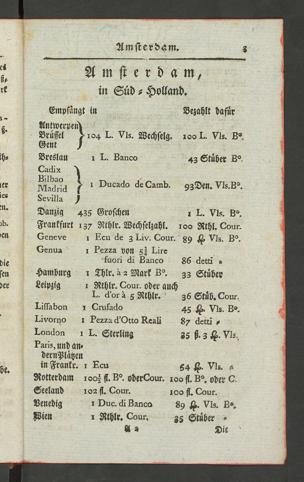 Amsterdam. 3
Amsterdam,
in Süd-Holland.
Empfängt in Bezahlt dafür
Antwerpen
Brüssel 104 L. Vls. Wechselg. 100 L. Vls. Bº.
Gent
Breslau 1 L. Banco 43 Stüber Bº.
Cadix
Bilbao
Madrid 1 Ducado de Camb. 93 Den. Vls. Bº.
Sevilla
Danzig 435 Groschen 1 L. Vls. Bº.
Frankfurt 137 Rthlr. Wechselzahl. 100 Rthl. Cour.
Geneve 1 Ecu de 3 Liv. Cour. 89 ₰. Vls. Bº.
Genua 1 Pezza von 5¾ Lire
fuori di Banco 86 detti "
Hamburg 1 Thlr. à 2 Mark Bº. 33 Stüber
Leipzig 1 Rthlr. Cour. oder auch
L. d'or à 5 Rthlr. 36 Stüb. Cour.
Lissabon 1 Crusado 45 ₰. Vls. Bº.
Livorno 1 Pezza d'Otto Reali 87 detti "
London 1 L. Sterling 35 ß. 3 ₰. Vls.
Paris, und an-
dern Plätzen
in Frankr. 1 Ecu 54 ₰. Vls. "
Rotterdam 100½ fl. Bº. oder Cour. 100 fl. Bº. oder C.
Seeland 102 fl. Cour. 100 fl. Cour.
Venedig 1 Duc. di Banco 89 ₰. Vls. Bº.
Wien 1 Rthlr. Cour. 35 Stüber "
A 2 Dit